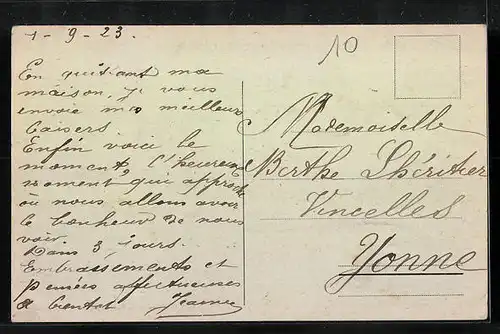 1-9-23.
10
En quittant ma
maison, je vous
envoie mes meilleurs
baisers
Enfin voici le
moment, l'heureux
moment, qui approche
où nous allons avoir
le bonheur de nous
voir.
Dans 3 jours.
Embrassements et
pensées affectueuses
à bientot Jeanne
Mademoiselle
Berthe Lhéritier
Vincelles
Yonne